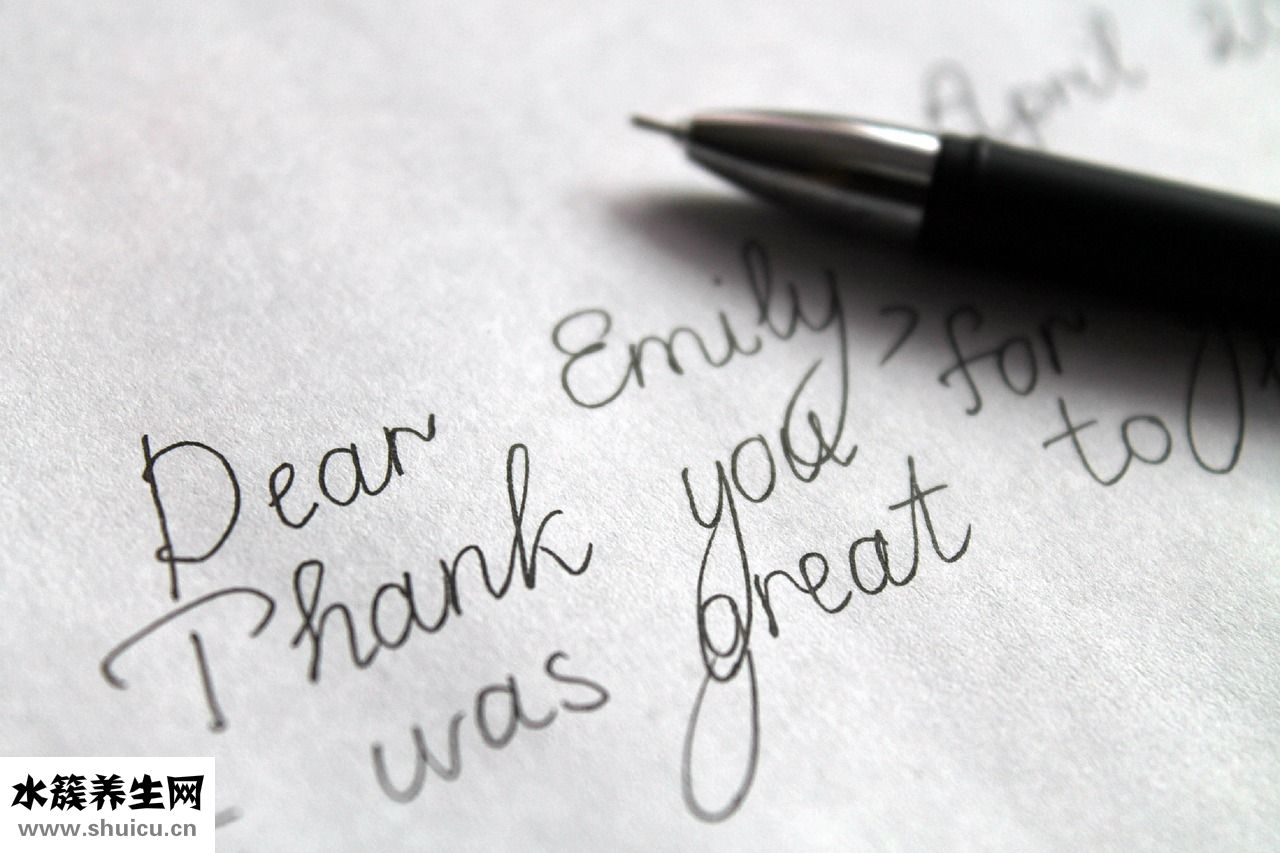 April
Dear Emily,
Thank you for
was great to
水簇养生网
www.shuicu.cn